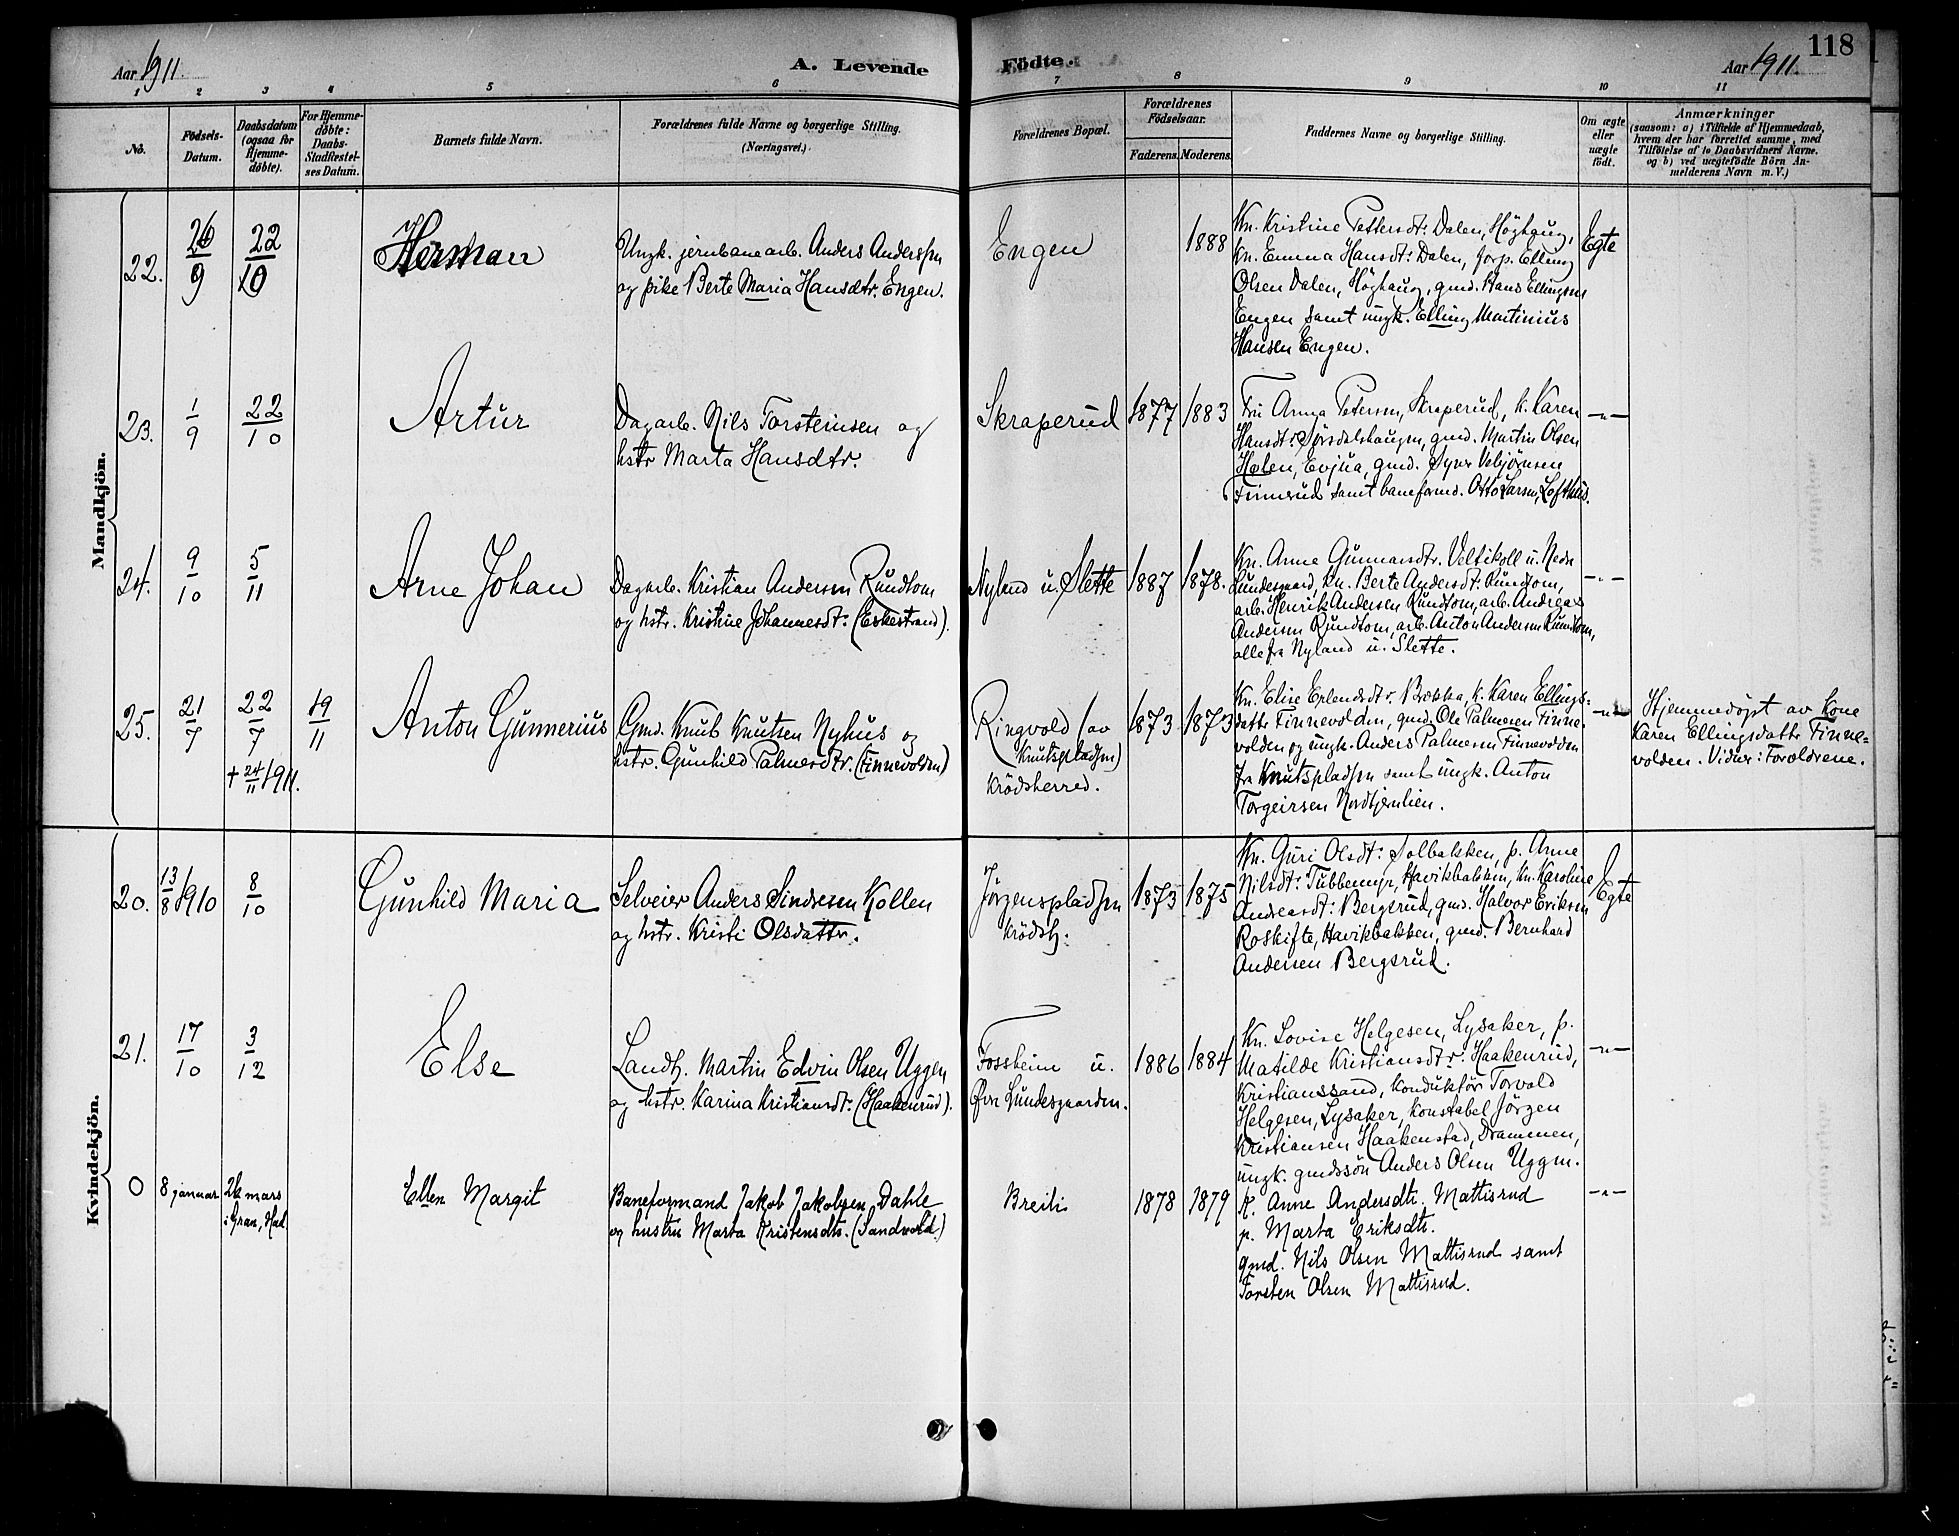 118
Aar 1911.
A. Levende
Födte.
Aar 1911.
1 2 3 4 5 6 7 8 9 10 11
No.
Födsels-
Datum.
Daabsdatum
(ogsaa for
Hjemme-
døbte).
For Hjemme-
døbte:
Daabs-
Stadfæstel-
ses Datum.
Barnets fulde Navn.
Forældrenes fulde Navne og borgerlige Stilling.
(Næringsvei.)
Forældrenes Bopæl.
Forældrenes
Födselsaar.
Faderens. Moderens.
Faddernes Navne og borgerlige Stilling.
Om ægte
eller
uægte
født.
Anmærkninger
(saasom: a) i Tilfælde af Hjemmedaab,
hvem der har forrettet samme, med
Tilföielse af to Daabsvidners Navne.
og b) ved uægtefödte Börn An-
melderens Navn m. V.)
Mandkjön.
22.
26/9
22/10
Herman
Ungk. jernbanearb. Anders Anderssen
og pike Berte Maria Hansdtr. Engen.
Engen
1888
Kn. Kristine Pettersdt: Dalen, Höghaug,
kn. Emma Hansdt: Dalen, forp. Elling
Olsen Dalen, Höghaug, gmd. Hans Ellingsen
Engen samt ungk. Elling Martinius
Hansen Engen.
Egte
23.
1/9
22/10
Artur
Dagarb. Nils Torsteinsen og
hstr Marta Hansdtr.
Skraperud
1877
1883
Fru Anna Petersen, Skraperud, k. Karen
Hansdt: Sørsdalshaugen, gmd. Martin Olsen
Hælen, Evjua, gmd. Syver Vebjørnsen
Finnerud samt baneformd. Otto Larsen, Lofthus.
-"-
24.
9/10
5/11
Arne Johan
Dagarb. Kristian Andersen Rundtom
og hstr. Kristine Johannesdt: (Eskestrand).
Nyland u. Slette
1887
1878.
Kn. Anne Gunnarsdtr. Veltikoll u. Nedr
Lundesgaard, kn. Berte Andersdt: Rundtom,
arb. Henrik Andersen Rundtom, arb. Andreas
Andersen Rundtom, arb. Anton Andersen Rundtom,
alle fra Nyland u. Slette.
-"-
25.
21/7
22/7
+ 24/11 1911.
19/11
Anton Gunnerius
Gmd. Knut Knutsen Nyhus og
hstr. Gunhild Palmesdtr. (Finnevolden)
Ringvold (av
Knutspladsen)
Krödsherred.
1873
1873
Kn. Elise Erlendsdtr. Bækka, k. Karen Ellings-
datter Finnevolden, gmd. Ole Palmesen Finne-
volden og ungk. Anders Palmesen Finnevolden
fra Knutspladsen samt ungk. Anton
Torgeirsen Nordtjernlien.
-"-
Hjemmedøpt av kone
Karen Ellingsdatter Finne-
volden. Vidner: Forældrene.
Kvindekjön.
20.
13/8 1910
8/10
Gunhild Maria
Selveier Anders Sindresen Kollen
og hstr. Kristi Olsdatter.
Jørgenspladsen
Krödsh.
1873
1875
Kn. Guri Olsdt: Solbakken, p. Anne
Nilsdt: Tubbemyr, Havikbakken, kn. Karoline
Andreasdt: Bergsrud, gmd. Halvor Eriksen
Roskifte, Havikbakken, gmd. Bernhard
Andersen Bergsrud.
Egte
21.
17/10
3/12
Else
Landh. Martin Edvin Olsen Uggen
og hstr. Karina Kristiansdt: (Haakenrud).
Fossheim u.
Øvr Lundesgaarden.
1886
1884
Kn. Lovise Helgesen, Lysaker, p.
Matilde Kristiansdtr: Haakenrud,
Kristianssand, konduktör Torvald
Helgesen, Lysaker, konstabel Jörgen
Kristiansen Haakenstad, Drammen,
ungk. gmdssön Anders Olsen Uggen.
-"-
0
8 januar
26 mars
i Gran, Had.
Ellen Margit
Baneformand Jakob Jakobsen Dahle
og hustru Marta Kristensdtr. (Sandvold.)
Breili
1878
1879
K. Anne Andersdtr. Mattisrud
p. Marta Eriksdtr.
gmd. Nils Olsen Mattisrud samt
Torsten Olsen Mattisrud.
-"-